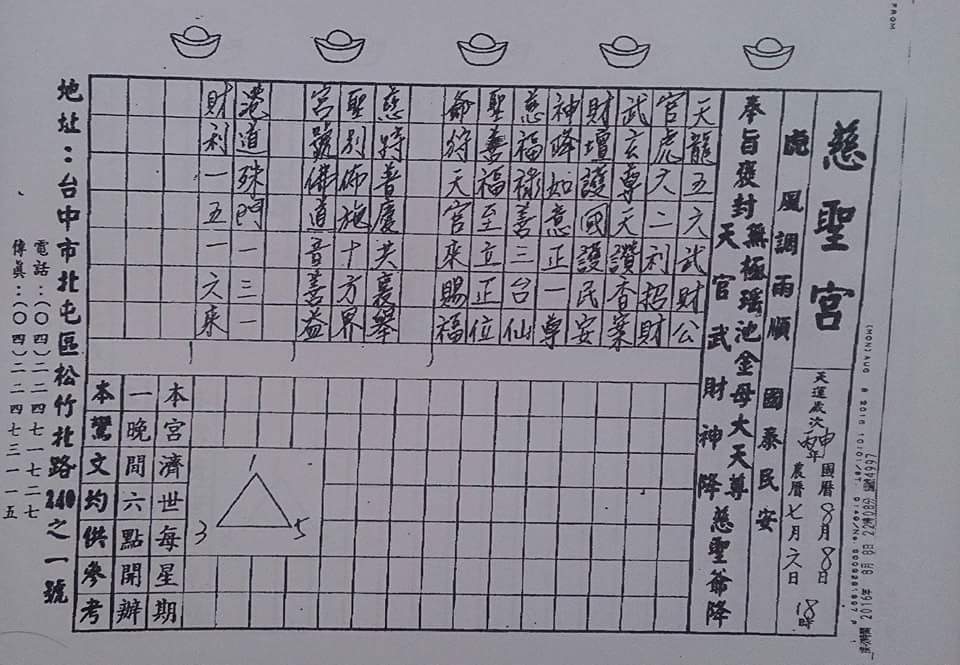 FROM
2016年 8月 8日 22時08分
慈聖宮
天運歲次丙申年 國曆8月8日 農曆七月六日 18時
虎 風調雨順 國泰民安
奉旨褒封無極瑤池金母大天尊
天官武財神降 慈聖爺降
天龍五六武財公
官虎六二利招財
武玄尊天讚香案
財壇護國護民安
神降如意正一尊
慈福祿善三台仙
聖善福至立正位
爺符天官來賜福
慈特普慶共襄舉
聖別佈施十方界
宮號佛道音善益
港道殊門一三一
財利一五一六來
1
3 5
本宮濟世每星期
一晚間六點開辦
本鸞文均供參考
地址：台中市北屯區松竹北路240之一號
電話：(〇四)二二四七一七二七
傳真：(〇四)二二四七三一一五